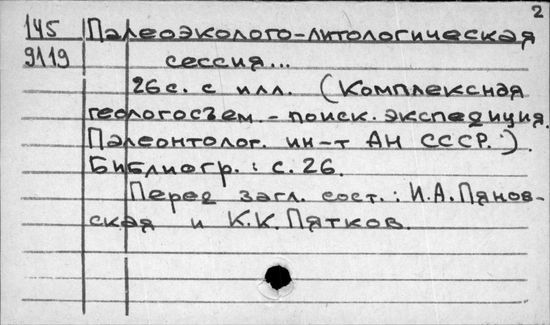 2
145 Палеоэколого-литологическая
9119 сессия...
26 с. с илл. (Комплексная
геологосъем.-поиск. экспедиция.
Палеонтолог. ин-т АН СССР.)
Библиогр.: с. 26.
Перед загл. сост.: И.А. Пянов-
ская и К.К. Пятков.